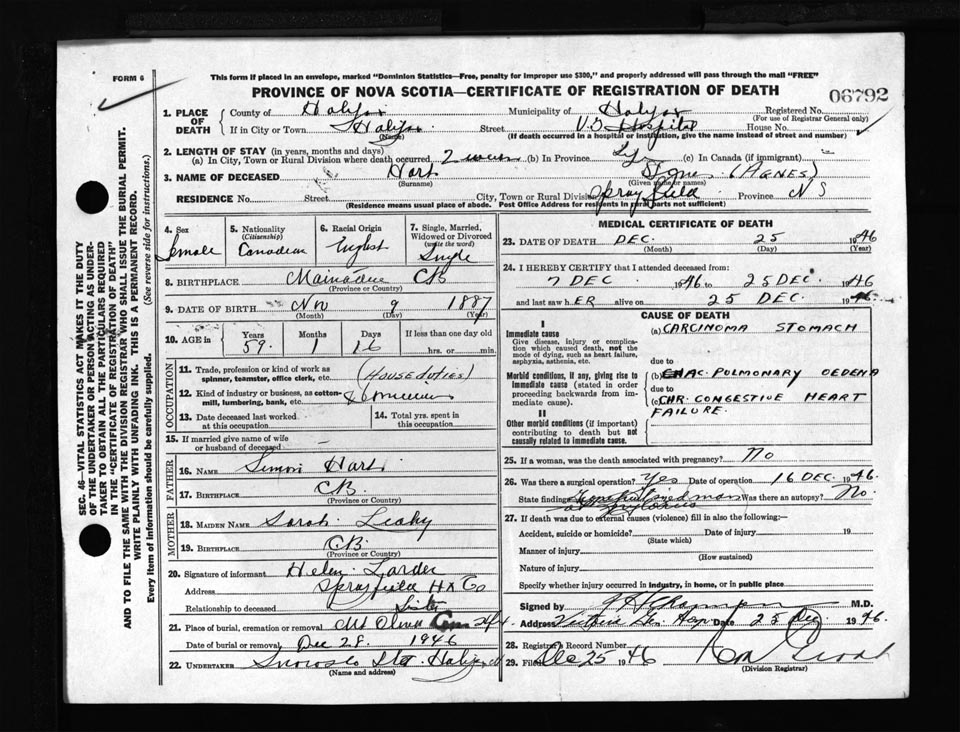 FORM 6
This form if placed in an envelope, marked "Dominion Statistics—Free, penalty for improper use $300," and properly addressed will pass through the mail "FREE"
PROVINCE OF NOVA SCOTIA—CERTIFICATE OF REGISTRATION OF DEATH
06792
SEC. 46—VITAL STATISTICS ACT MAKES IT THE DUTY
OF THE UNDERTAKER OR PERSON ACTING AS UNDER-
TAKER TO OBTAIN ALL THE PARTICULARS REQUIRED
IN THE "CERTIFICATE OF REGISTRATION OF DEATH"
AND TO FILE THE SAME WITH THE DIVISION REGISTRAR WHO SHALL ISSUE THE BURIAL PERMIT.
WRITE PLAINLY WITH UNFADING INK. THIS IS A PERMANENT RECORD.
Every item of information should be carefully supplied. (See reverse side for instructions.)
1. PLACE OF DEATH
County of Halifax Municipality of Halifax Registered No.
(For use of Registrar General only)
If in City or Town Halifax Street V.G Hospital House No.
(Name) (If death occurred in a hospital or institution, give the name instead of street and number)
2. LENGTH OF STAY (in years, months and days)
(a) In City, Town or Rural Division where death occurred 2 weeks (b) In Province (c) In Canada (if immigrant)
3. NAME OF DECEASED Hart (AGNES)
(Surname) (Given name or names)
RESIDENCE No. Street City, Town or Rural Division Spryfield Province N S
(Residence means usual place of abode. Post Office Address for residents in rural parts not sufficient)
4. Sex Female
5. Nationality (Citizenship) Canadian
6. Racial Origin English
7. Single, Married, Widowed or Divorced (write the word) Single
8. BIRTHPLACE Mainadieu CB
(Province or Country)
9. DATE OF BIRTH Nov 9 1887
(Month) (Day) (Year)
10. AGE in Years 59 Months 1 Days 16 If less than one day old
hrs. or min.
OCCUPATION
11. Trade, profession or kind of work as spinner, teamster, office clerk, etc. (HOUSE DUTIES)
12. Kind of industry or business, as cotton-mill, lumbering, bank, etc.
13. Date deceased last worked at this occupation
14. Total yrs. spent in this occupation
15. If married give name of wife or husband of deceased —
FATHER
16. NAME Simon Hart
17. BIRTHPLACE C.B.
(Province or Country)
MOTHER
18. MAIDEN NAME Sarah Leahy
19. BIRTHPLACE CB
(Province or Country)
20. Signature of informant Helen Larder
Address Spryfield Hx Co
Relationship to deceased Sister
21. Place of burial, cremation or removal Mt Olivet
Date of burial or removal Dec 28 1946
22. UNDERTAKER Snows Halifax
(Name and address)
MEDICAL CERTIFICATE OF DEATH
23. DATE OF DEATH DEC. 25 1946
(Month) (Day) (Year)
24. I HEREBY CERTIFY that I attended deceased from:
7 DEC 1946 to 25 DEC. 1946
and last saw hER alive on 25 DEC. 1946
CAUSE OF DEATH
I
Immediate cause
Give disease, injury or complication which caused death, not the mode of dying, such as heart failure, asphyxia, asthenia, etc.
(a) CARCINOMA STOMACH
due to
Morbid conditions, if any, giving rise to immediate cause (stated in order proceeding backwards from immediate cause).
(b) PULMONARY OEDEMA
due to
(c) CHR. CONGESTIVE HEART FAILURE.
II
Other morbid conditions (if important) contributing to death but not causally related to immediate cause.
25. If a woman, was the death associated with pregnancy? No
26. Was there a surgical operation? Yes Date of operation 16 DEC. 1946.
State findings Was there an autopsy? No.
27. If death was due to external causes (violence) fill in also the following:—
Accident, suicide or homicide? Date of injury 19
(State which)
Manner of injury
(How sustained)
Nature of injury
Specify whether injury occurred in industry, in home, or in public place
Signed by M.D.
Address Victoria Gen. Hosp. Date 25 Dec 1946.
28. Registrar's Record Number
29. Filed Dec 25 1946
(Division Registrar)